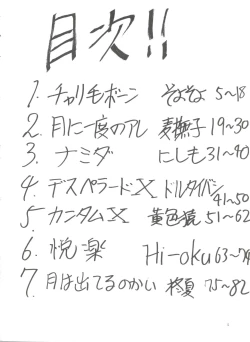 目次!!
1. チャリモボーン そよそよ 5~18
2. 月に一度のアレ 麦撫子 19~30
3. ナミダ にしも 31~40
4. デスペラードX ドルタイバン 41~50
5 カンタムX 黄色猿 51~62
6. 悦楽 Hi-oku 63~74
7. 月は出てるのかい 柊夏 75~82